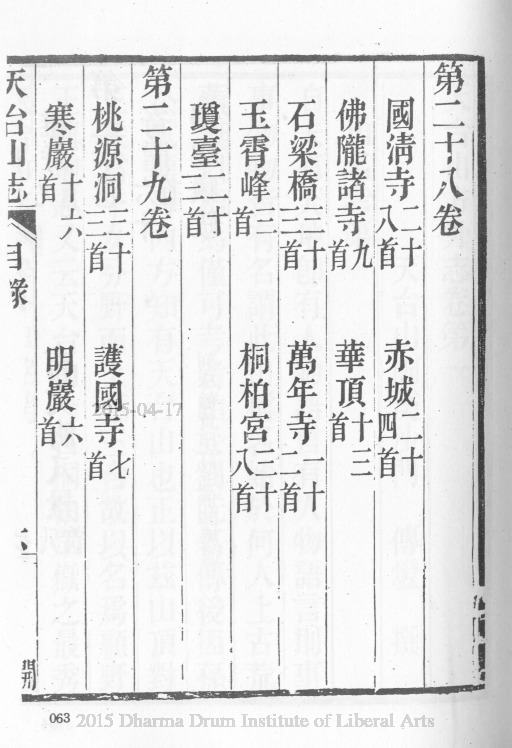 第二十八卷
國淸寺二十八首　赤城二十四首
佛隴諸寺九首　華頂十三首
石梁橋三十三首　萬年寺一十二首
玉霄峰三首　桐柏宮三十八首
瓊臺二十三首
第二十九卷
桃源洞三十三首　護國寺七首
寒巖十六首　明巖六首
天台山志　目錄
2015-04-17
063 2015 Dharma Drum Institute of Liberal Arts